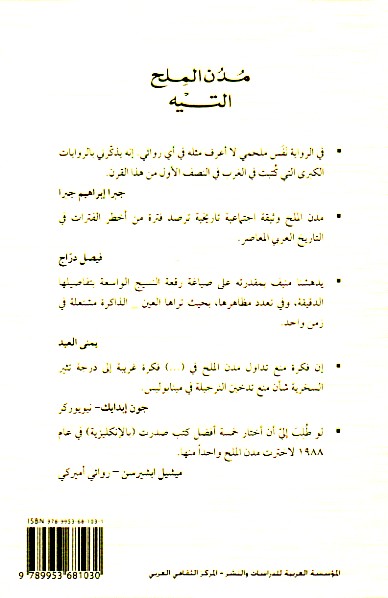 مُدُن المِلح
التِّيْه
▪ في الرواية نَفَس ملحمي لا أعرف مثله في أي روائي. إنه يذكّرني بالروايات
الكبرى التي كُتبت في الغرب في النصف الأول من هذا القرن.
جبرا إبراهيم جبرا
▪ مدن الملح وثيقة اجتماعية تاريخية ترصد فترة من أخطر الفترات في
التاريخ العربي المعاصر.
فيصل درّاج
▪ يدهشنا منيف بمقدرته على صياغة رقعة النسيج الواسعة بتفاصيلها
الدقيقة، وفي تعدد مظاهرها، بحيث تراها العين _ الذاكرة مشتعلة في
زمن واحد.
يمنى العيد
▪ إن فكرة منع تداول مدن الملح في (...) فكرة غريبة إلى درجة تثير
السخرية شأن منع تدخين النرجيلة في مينابوليس.
جون إبدايك- نيويوركر
▪ لو طُلبَ إليّ أن أختار خمسة أفضل كتب صدرت (بالإنكليزية) في عام
١٩٨٨ لاخترت مدن الملح واحداً منها.
ميشيل ابشيرسن - روائي أميركي
ISBN 978-9953-68-103-1
9 789953 681030
المؤسسة العربية للدراسات والنشر - المركز الثقافي العربي